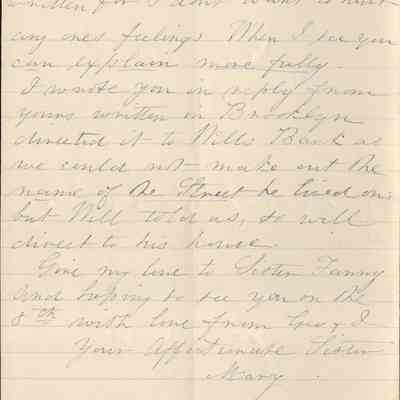 written for I don't want to hurt
any ones feelings. When I see you
can explain more fully.
I wrote you in reply from
yours written in Brooklyn
directed it to Wills Bank as
we could not make out the
name of the Street he lived on.
but Will told us, so will
direct to his house.
Give my love to Sister Fanny
and hoping to see you on the
8th with love from Geo & I
Your Affectionate Sister
Mary.